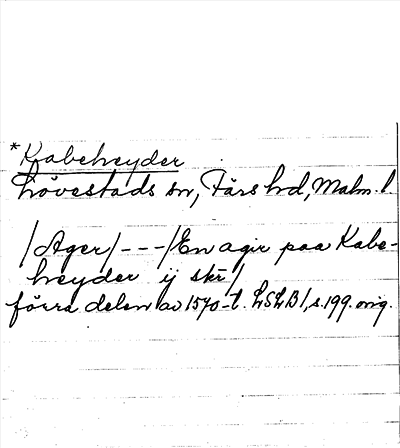 *Kabehreyder
Lövestads sn, Färs hd, Malm. l.
/Ager/---/En agir paa Kabe-
hreyder ij skr/
förra delen av 1570-t. LSLB1, s. 199. orig.